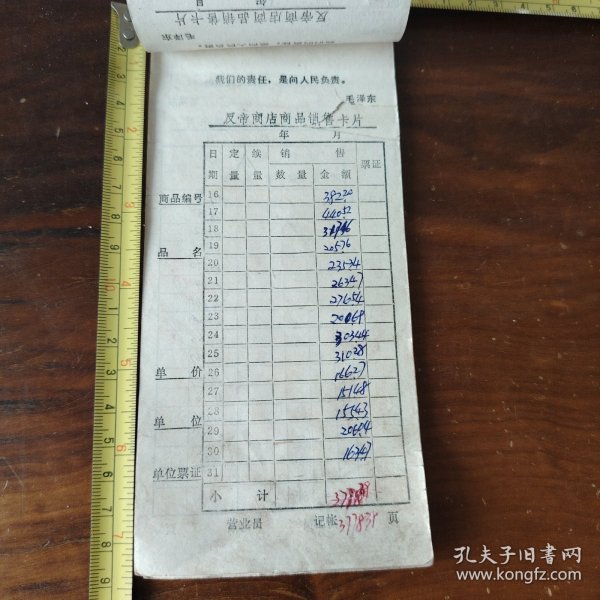 反帝商店商品销售卡片
毛泽东
我们的责任，是向人民负责。
毛泽东
反帝商店商品销售卡片
年 月
日期 定量 续量 销售 数量 金额 票证
商品编号
品名
单价
单位
单位票证
16 38220
17 44052
18
19 20576
20 23534
21 26347
22 27654
23 20069
24 30344
25 31028
26 16627
27 15148
28 15543
29 20614
30 16347
31
小计
营业员 记帐 377835 页
孔夫子旧书网
www.kongfz.com